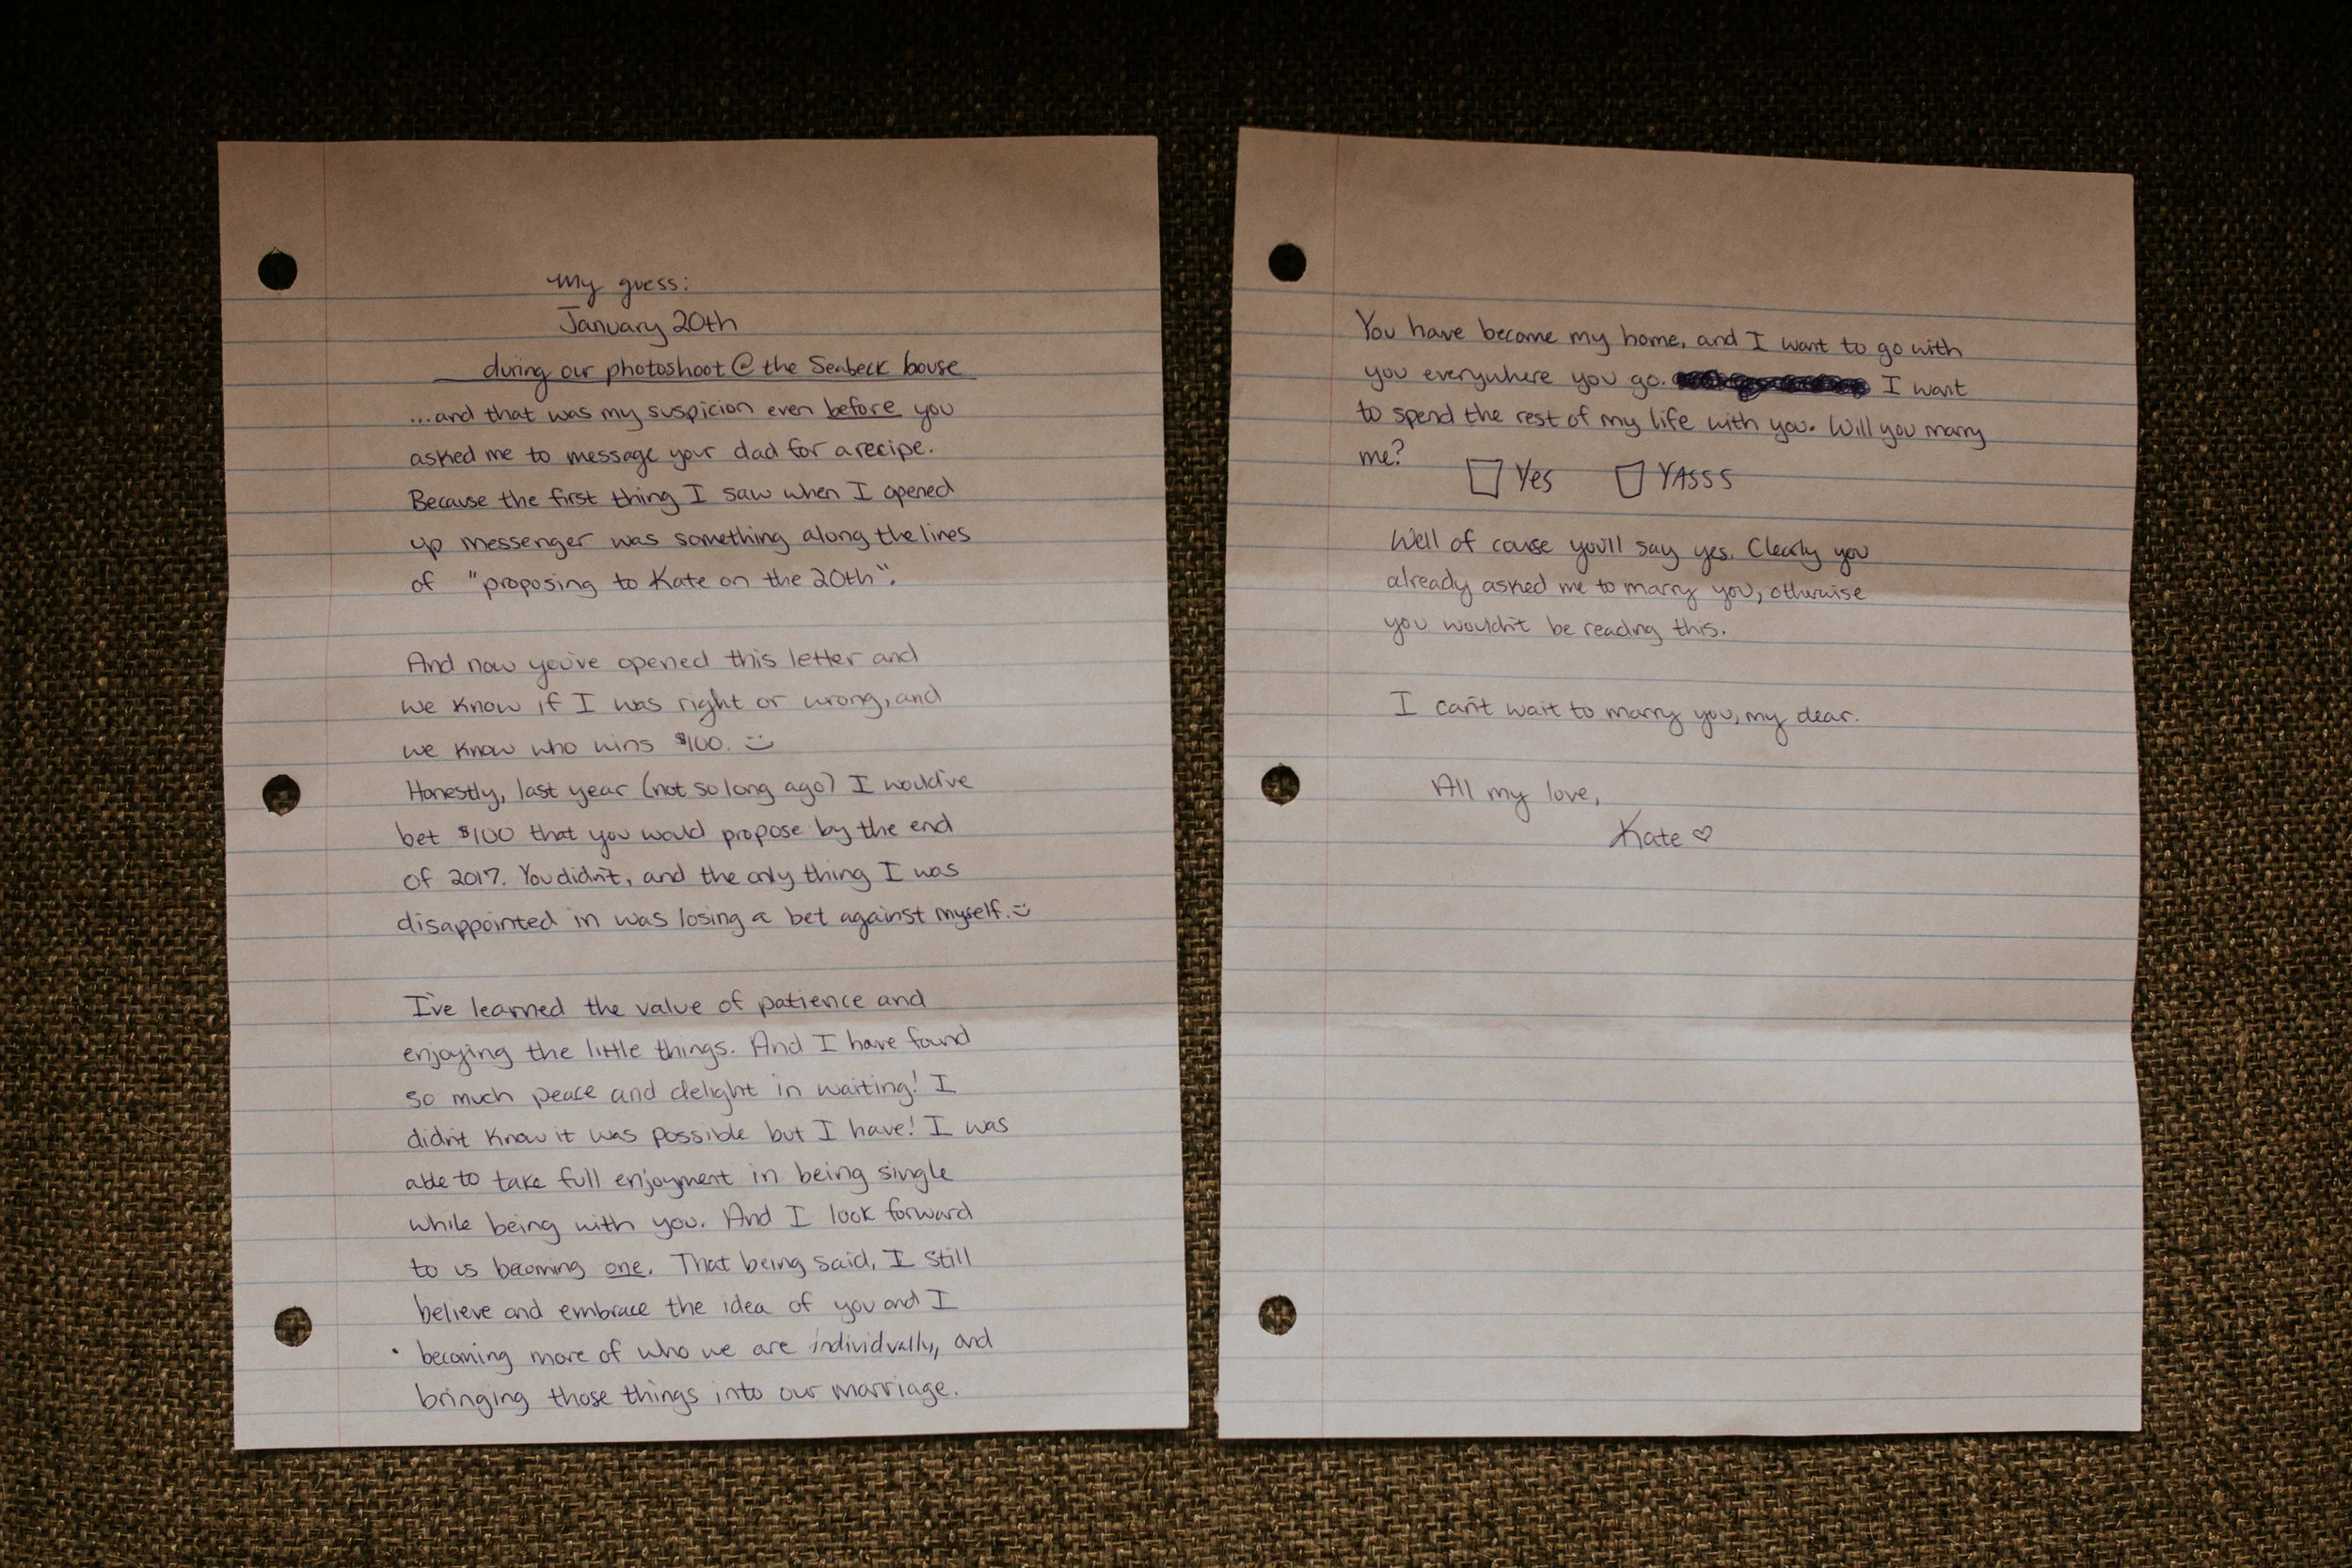 My guess:
January 20th
during our photoshoot @ the Seabeck house
...and that was my suspicion even before you
asked me to message your dad for a recipe.
Because the first thing I saw when I opened
up messenger was something along the lines
of "proposing to Kate on the 20th".
And now you've opened this letter and
we know if I was right or wrong, and
we know who wins $100. :)
Honestly, last year (not so long ago) I would've
bet $100 that you would propose by the end
of 2017. You didn't, and the only thing I was
disappointed in was losing a bet against myself. :)
I've learned the value of patience and
enjoying the little things. And I have found
so much peace and delight in waiting! I
didn't know it was possible but I have! I was
able to take full enjoyment in being single
while being with you. And I look forward
to us becoming one. That being said, I still
believe and embrace the idea of you and I
becoming more of who we are individually, and
bringing those things into our marriage.
You have become my home, and I want to go with
you everywhere you go. I want
to spend the rest of my life with you. Will you marry
me? ☐ Yes ☐ YASSS
Well of course you'll say yes. Clearly you
already asked me to marry you, otherwise
you wouldn't be reading this.
I can't wait to marry you, my dear.
All my love,
Kate ♡